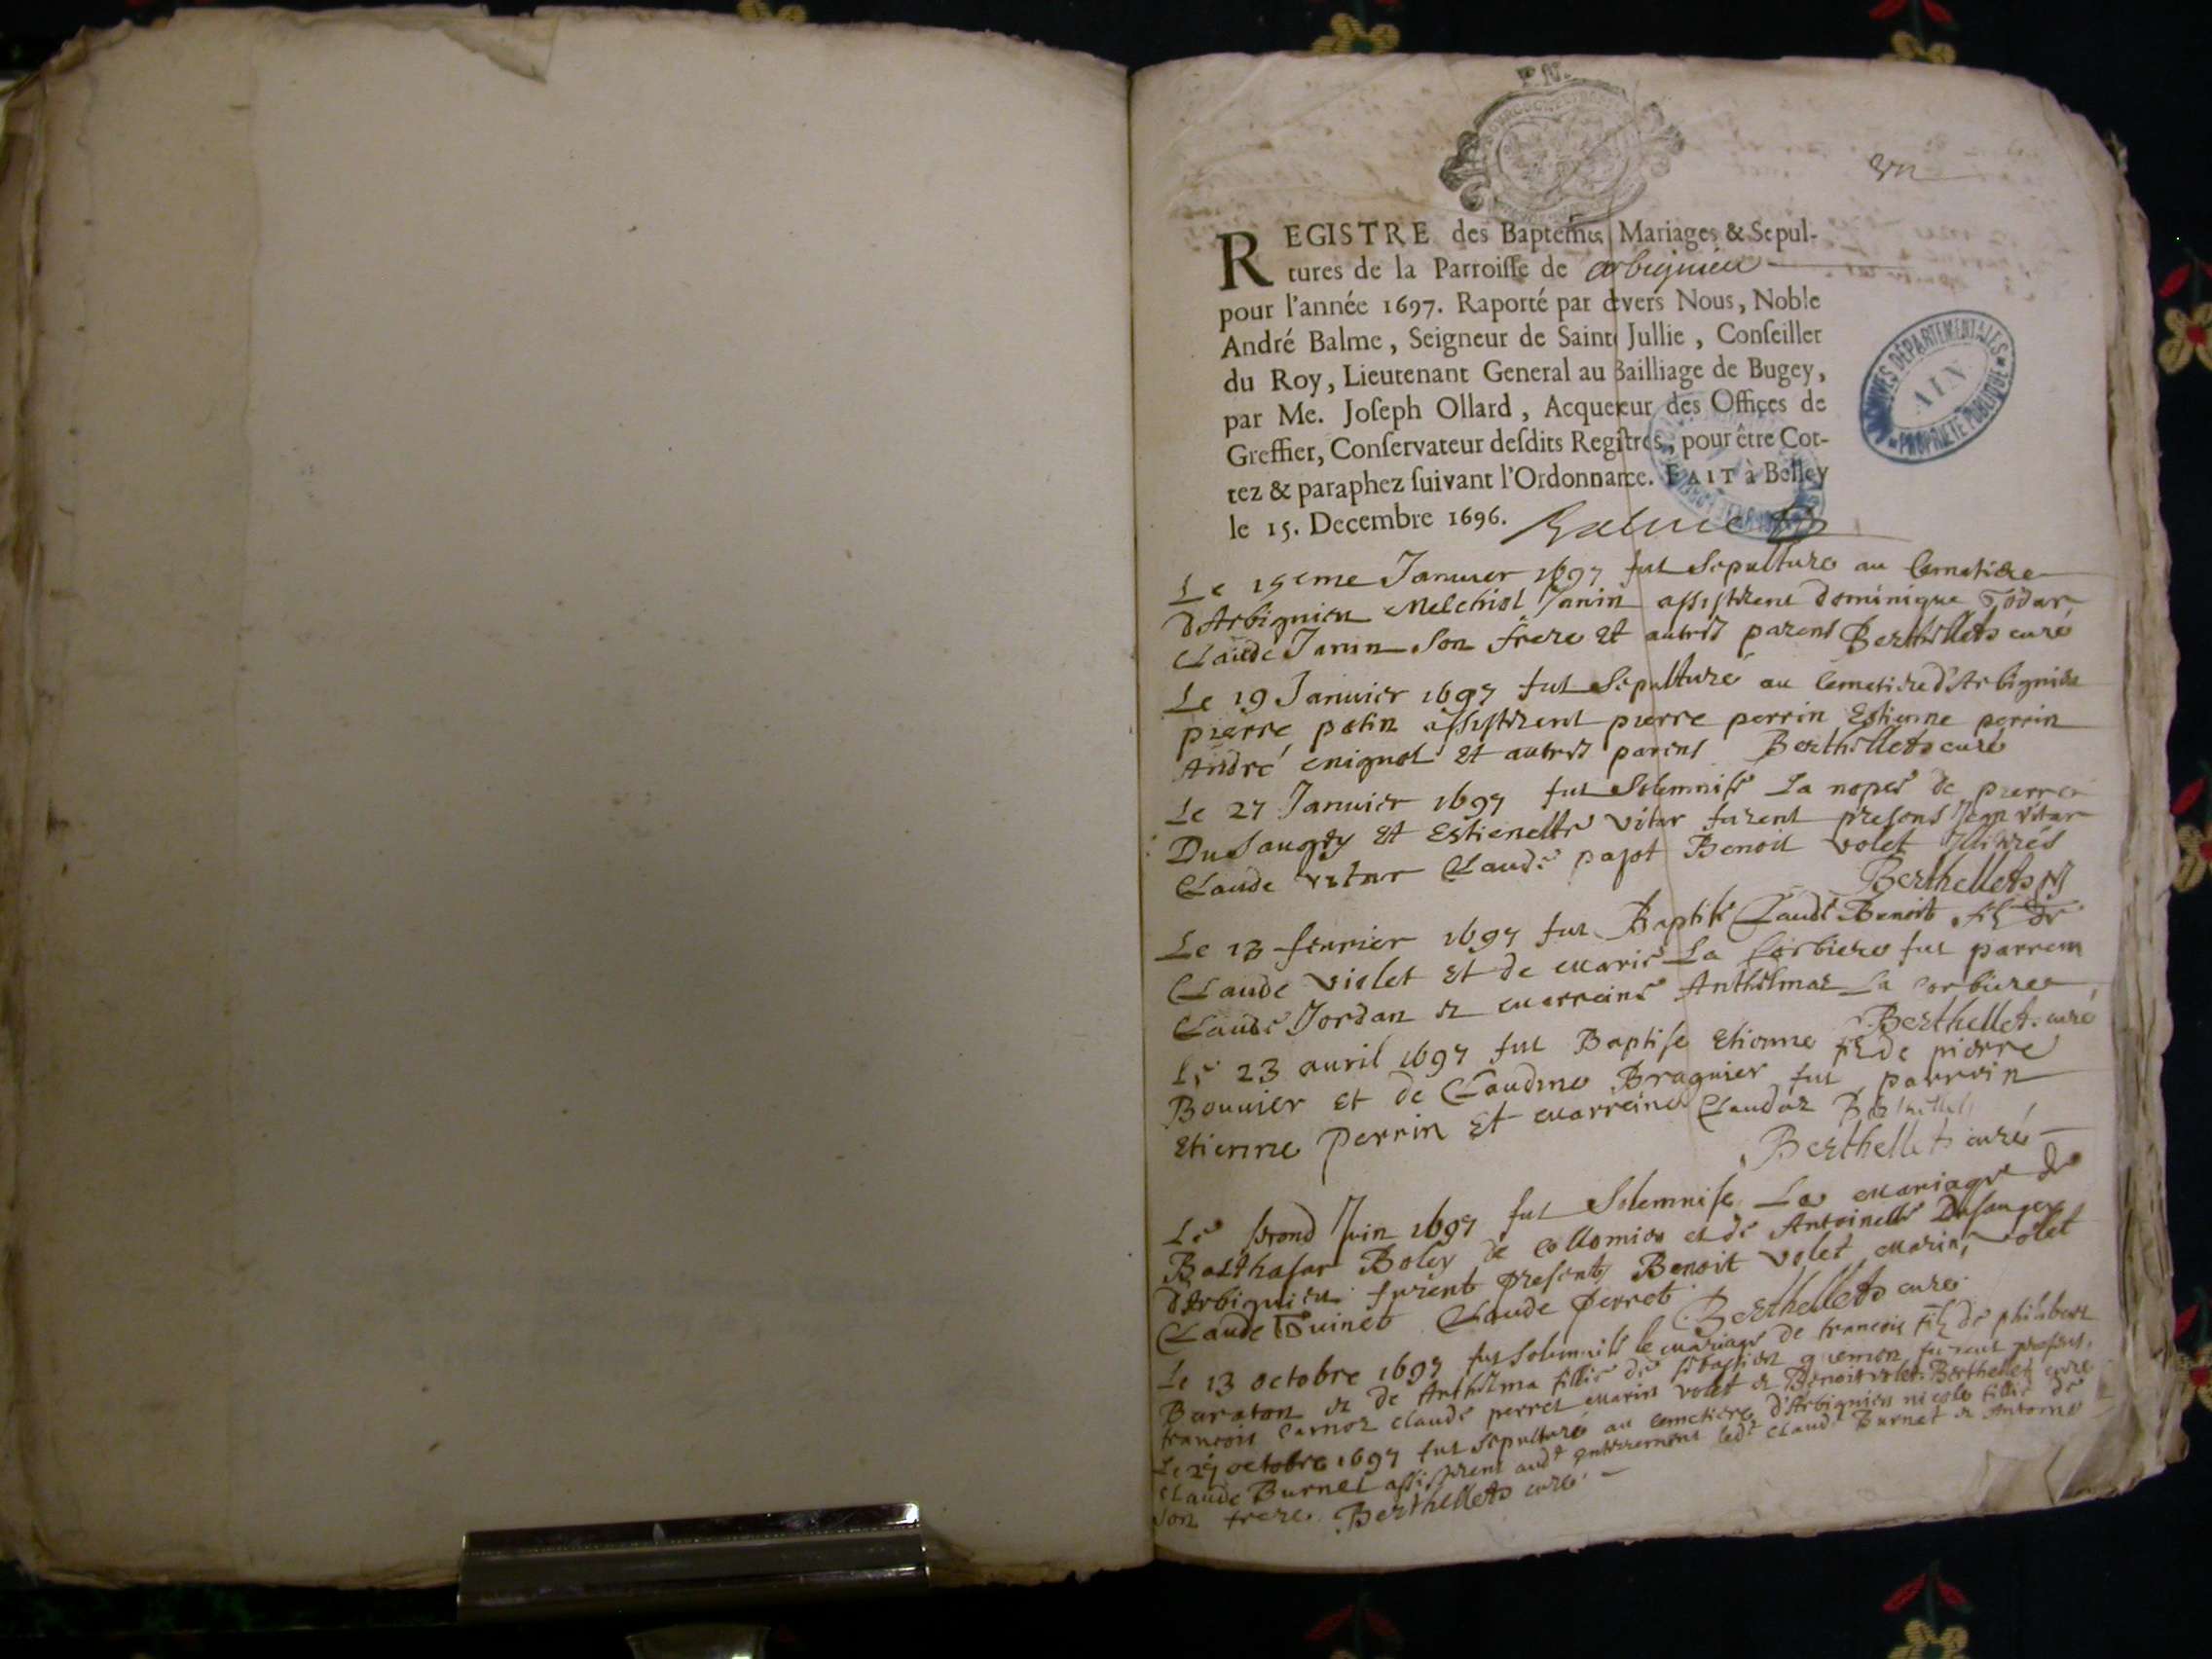 P. N.
un
REGISTRE des Baptemes, Mariages & Sepul-
tures de la Parroisse de Arbignieu
pour l'année 1697. Raporté par devers Nous, Noble
André Balme, Seigneur de Sainte Jullie, Conseiller
du Roy, Lieutenant General au Bailliage de Bugey,
par Me. Joseph Ollard, Acquereur des Offices de
Greffier, Conservateur desdits Registres, pour être Cot-
tez & paraphez suivant l'Ordonnance. FAIT à Belley
le 15. Decembre 1696. Balme
ARCHIVES DÉPARTEMENTALES
AIN
PROPRIÉTÉ PUBLIQUE
Le 15eme Januier 1697 fut Sepulturé au Cemetiere
d'Arbignieu Melchiol Janin assisterent dominique
Claude Janin son frere et autres parens Berthellet curé
Le 19 Januier 1697 fut Sepulturé au Cemetiere d'Arbignieu
pierre assisterent pierre perrin Estienne perrin
André mignot et autres parens Berthellet curé
Le 27 Januier 1697 fut Solemnisé La nopes de pierre
Dusaugey et Estienette vitar furent presens Jean vitar
Claude vitar Claude pajot Benoit volet Illitrés
Berthellet
Le 13 feurier 1697 fut Baptisé Claude Benoit filz de
Claude violet et de marie La Corbiere fut parrein
Claude Jordan et marreine Anthelmaz La Corbiere
Berthellet curé
Le 23 auril 1697 fut Baptise Etienne filz de pierre
Bouuier et de Claudine Braguier fut parrein
Etienne perrin et marreine Claudaz
Berthellet curé
Le second Juin 1697 fut Solemnise Le mariage de
Balthasar Boley de Collomieu et de Antoinette Dusaugey
d'Arbignieu furent presents Benoit volet marin volet
Claude Guinet Claude perret Berthellet curé
Le 13 octobre 1697 fut Solemnisé le mariage de francois filz de philibert
Buraton et de Anthelma fillie de sebastien furent presens
francois Carnoz claude perret marin volet et Benoit volet Berthellet curé
Le 29 octobre 1697 fut Sepulturé au cemetiere d'Arbignieu nicole fillie de
claude Burnet assisterent audt enterrement ledt claude Burnet et Antoine
son frere Berthellet curé